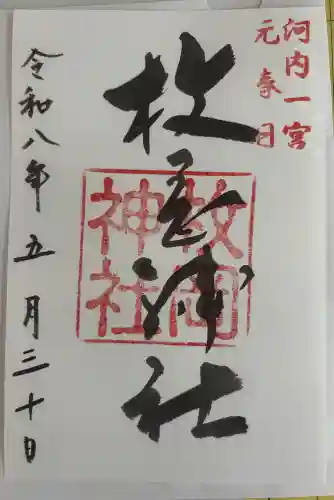 河内一宮
元春日
枚岡神社
枚岡
神社
令和八年五月三十日